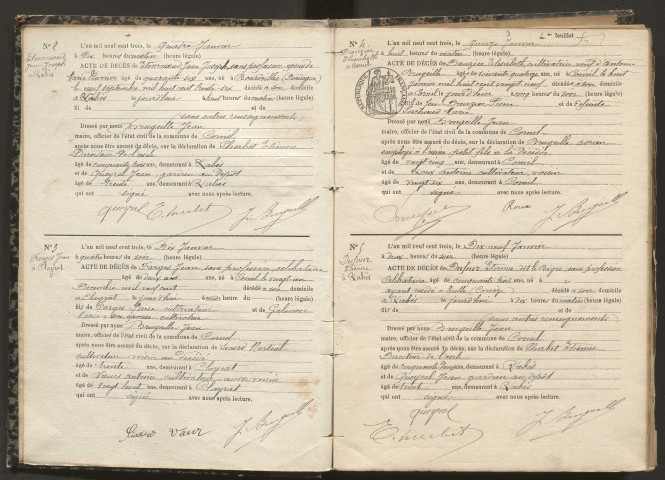 N° 2
L'an mil neuf cent trois, le quatre Janvier
à dix heures du matin (heure légale)
ACTE DE DÉCÈS de Jean Joseph, sans profession, époux de
Marie âgé de quarante six ans, né à
le neuf septembre mil huit cent cinquante six décédé à son domicile
à Rabès le jourd'hui à huit heures du matin (heure légale)
fils de
sans autres renseignements
Dressé par nous Brugeille Jean
maire, officier de l'état civil de la commune de Cornil
après nous être assuré du décès, sur la déclaration de Etienne
Directeur de
âgé de cinquante trois ans, demeurant à Rabès
et de Queyrel Jean, gardien au dépôt
âgé de trente ans, demeurant à Rabès
qui ont signé avec nous après lecture.
Queyrel J. Brugeille
N° 3
Farges Jean
à Peyrat
L'an mil neuf cent trois, le Dix Janvier
à quatre heures du soir (heure légale)
ACTE DE DÉCÈS de Farges Jean, sans profession, célibataire
âgé de deux ans, né à Cornil le vingt un
Décembre mil neuf cent décédé à son domicile
à Peyrat le jourd'hui à heures du (heure légale)
fils de Farges Pierre cultivateur et de
Marie, son épouse cultivatrice
Dressé par nous Brugeille Jean
maire, officier de l'état civil de la commune de Cornil
après nous être assuré du décès, sur la déclaration de Martial
cultivateur voisin du décédé
âgé de trente ans, demeurant à Peyrat
et de antoine cultivateur aussi voisin
âgé de vingt huit ans, demeurant à Peyrat
qui ont signé avec nous après lecture.
J. Brugeille
3
2me feuillet
N° 4
L'an mil neuf cent trois, le quinze Janvier
à huit heures du matin (heure légale)
ACTE DE DÉCÈS de Elisabeth, cultivatrice, veuve d'antoine
Brugeille âgée de soixante quatorze ans, née à Cornil le huit
Janvier mil huit cent vingt neuf décédée à son domicile
à Cornil le jourd'hui à cinq heures du (heure légale)
fille de feu Pierre et de
Marie
Dressé par nous Brugeille Jean
maire, officier de l'état civil de la commune de Cornil
après nous être assuré du décès, sur la déclaration de Brugeille
employé petit fils de la Décédée
âgé de vingt cinq ans, demeurant à Cornil
et de Roux antoine cultivateur, voisin
âgé de vingt six ans, demeurant à Cornil
qui ont signé avec nous après lecture.
Roux J. Brugeille
N° 5
Dufour
Etienne
à Rabès
L'an mil neuf cent trois, le Dix neuf Janvier
à deux heures du soir (heure légale)
ACTE DE DÉCÈS de Dufour Etienne sans profession
célibataire âgé de cinquante trois ans, né à
ayant résidé à Tulle, Corrèze décédé à son domicile
à Rabès le jourd'hui à dix heures du matin (heure légale)
fils de
sans autres renseignements
Dressé par nous Brugeille Jean
maire, officier de l'état civil de la commune de Cornil
après nous être assuré du décès, sur la déclaration de Etienne
Directeur de
âgé de cinquante trois ans, demeurant à Rabès
et de Queyrel Jean gardien au dépôt
âgé de trente ans, demeurant à Rabès
qui ont signé avec nous après lecture.
Queyrel
J. Brugeille